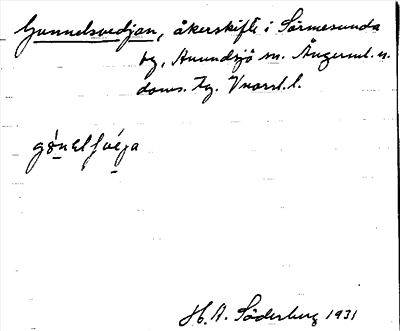 Gunnelsvedjan, åkerskifte i Sörmesunda
by, Anundsjö sn. Ångerml. n.
doms. tg. Vnorrl. l.
H. A. Söderberg 1931